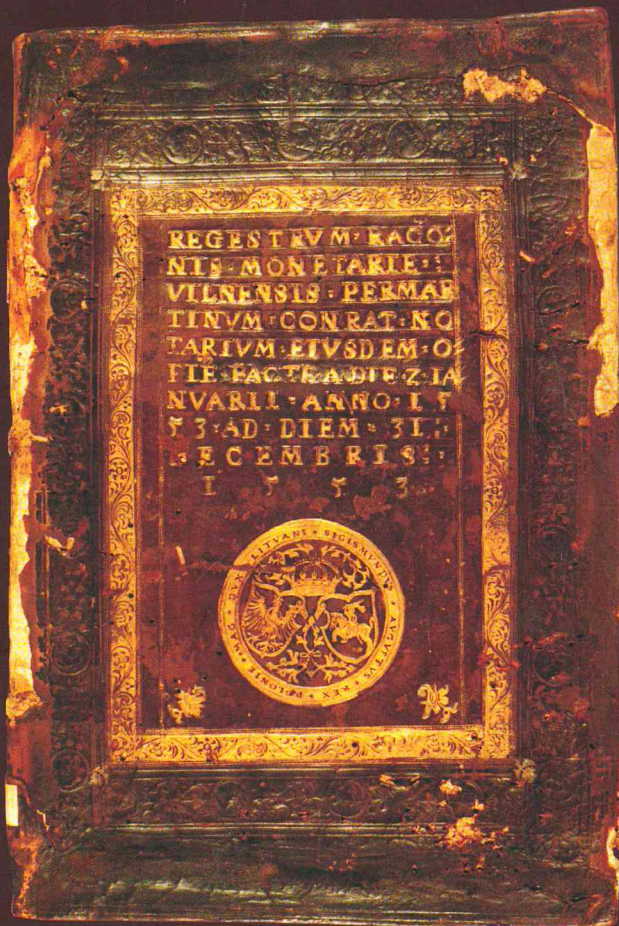 REGESTRVM·RACO͂·
NIS·MONETARIE·:
VILNENSIS·PERMAR
TINVM·CONRAT·NO
TARIVM·EIVSDEM·O·
FIE·FACTE·A·DIE·Z·IA
NVARII·ANNO·15
53·AD·DIEM·31·:
ECEMBRIS·:
1553
SIGISMVNDVS·AVGVTVS·REX·POLONIE·MAG·DVX·LITVANI·